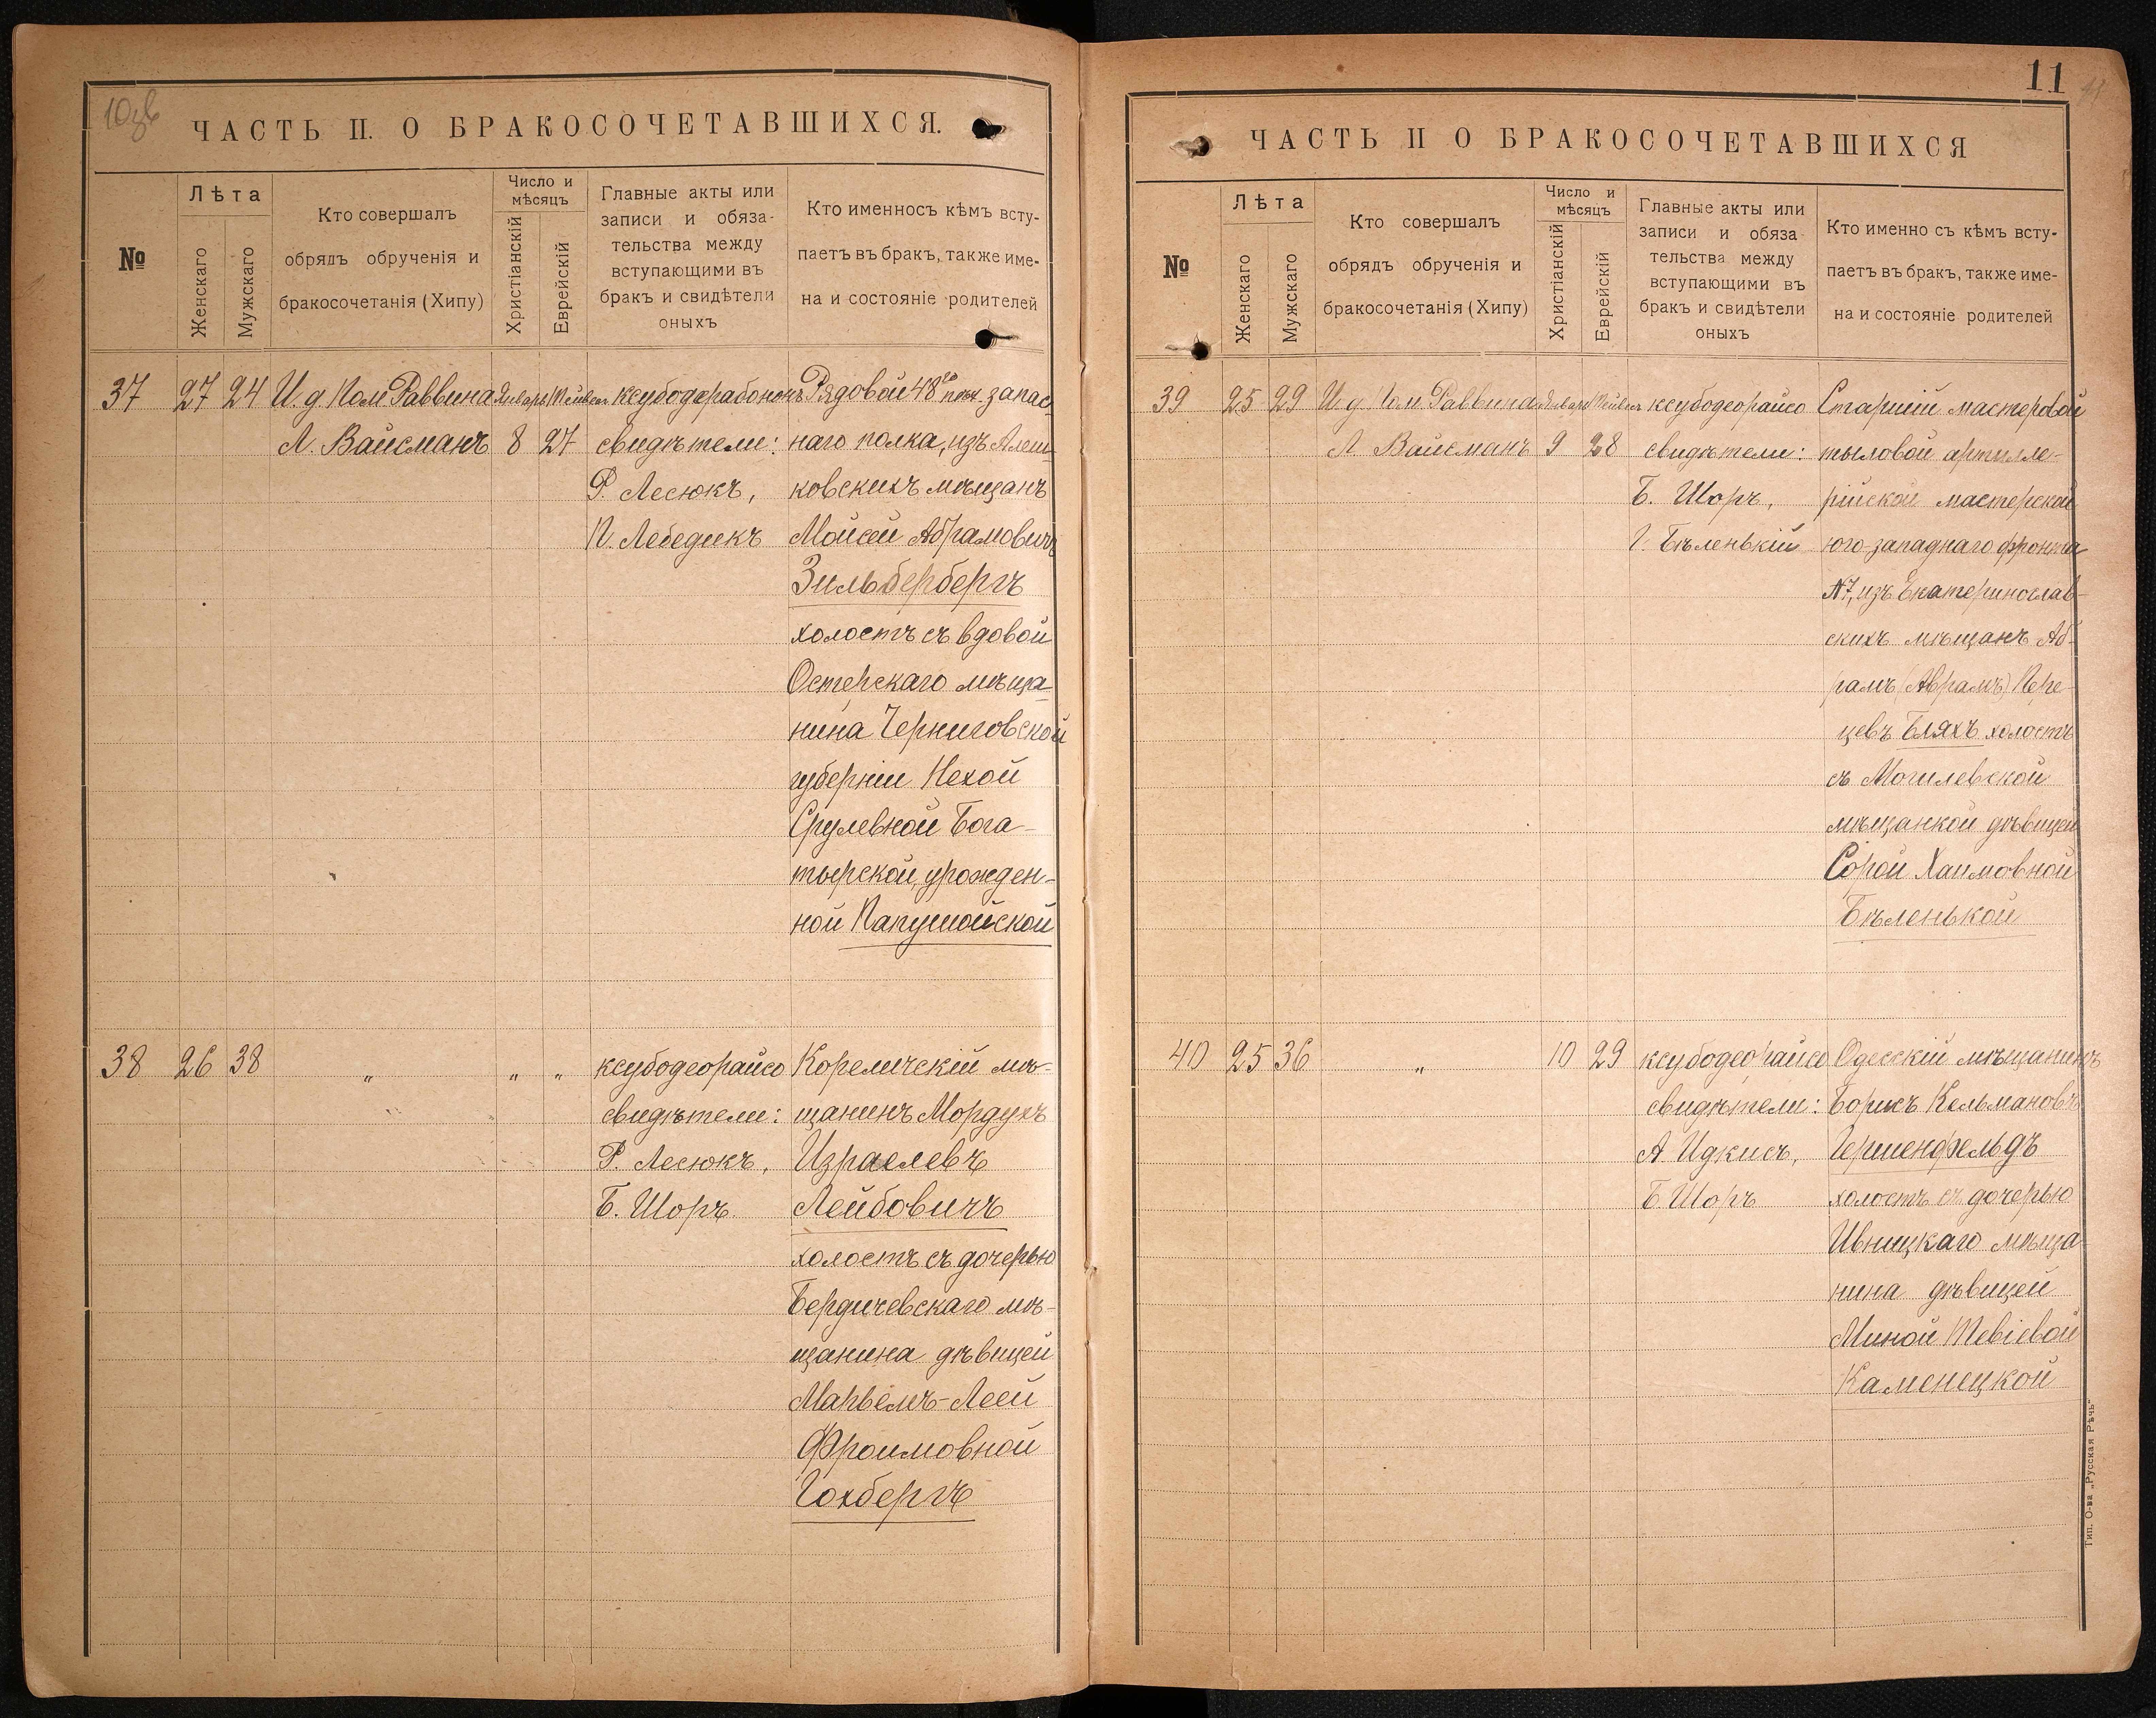 10зв
ЧАСТЬ II. О БРАКОСОЧЕТАВШИХСЯ.
№
Лѣта
Женскаго
Мужскаго
Кто совершалъ
обрядъ обрученія и
бракосочетанія (Хипу)
Число и
мѣсяцъ
Христіанскій
Еврейскій
Главные акты или
записи и обяза-
тельства между
вступающими въ
бракъ и свидѣтели
оныхъ
Кто именносъ кѣмъ всту-
паетъ въ бракъ, также име-
на и состояніе родителей
37 27 24 И.д. Пом Раввина Январь Тейвес ксубодерабонон Рядовой 48го пѣх. запас-
Л. Вайсманъ 8 27 свидѣтели: наго полка, изъ Алеш-
Р. Лесюкъ, ковскихъ мѣщанъ
П. Лебедикъ Мойсей Абрамовичъ
Зильбербергъ
холостъ съ вдовой
Остерскаго мѣща-
нина Черниговской
губерніи Нехой
Срулевной Бога-
тырской, урожден-
ной Папушойской
38 26 38 „ „ „ ксубодеорайсо Кореличскій мѣ-
свидѣтели: щанинъ Мордухъ
Р. Лесюкъ, Израелевъ
Б. Шоръ Лейбовичъ
холостъ съ дочерью
Бердичевскаго мѣ-
щанина дѣвицей
Марьемъ-Леей
Фроимовной
Гохбергъ
11
ЧАСТЬ II О БРАКОСОЧЕТАВШИХСЯ
№
Лѣта
Женскаго
Мужскаго
Кто совершалъ
обрядъ обрученія и
бракосочетанія (Хипу)
Число и
мѣсяцъ
Христіанскій
Еврейскій
Главные акты или
записи и обяза
тельства между
вступающими въ
бракъ и свидѣтели
оныхъ
Кто именно съ кѣмъ всту-
паетъ въ бракъ, также име-
на и состояніе родителей
39 25 29 И.д Пом Раввина Январь Тейвес ксубодеорайсо Старшій мастеровой
Л Вайсманъ 9 28 свидѣтели: тыловой артилле-
Б. Шоръ, рійской мастерской
Г. Бѣленькій юго-западнаго фронта
№7, изъ Екатеринослав-
скихъ мѣщанъ Аб-
рамъ (Аврамъ) Пере-
цевъ Бляхъ холостъ
съ Могилевской
мѣщанкой дѣвицей
Сорой Хаимовной
Бѣленькой
40 25 36 „ 10 29 ксубодеорайсо Одесскій мѣщанинъ
свидѣтели: Борисъ Кельмановъ
А Идкисъ, Гершенфельдъ
Б. Шоръ холостъ съ дочерью
Ивницкаго мѣща
нина дѣвицей
Миной Тевіевой
Каменецкой
Тип. О-ва „Русская Рѣчь“